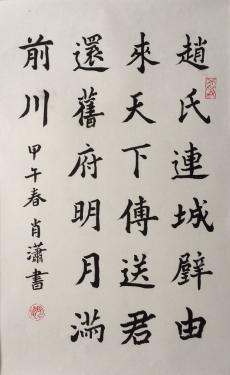 趙氏連城璧由
來天下傳送君
還舊府明月滿
前川
甲午春肖瀟書